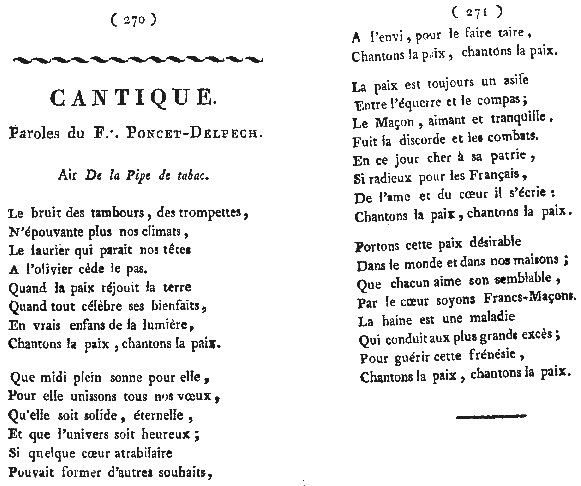 ( 270 )
CANTIQUE.
Paroles du F∴ PONCET-DELPECH.
Air De la Pipe de tabac.
Le bruit des tambours, des trompettes,
N'épouvante plus nos climats,
Le laurier qui parait nos têtes
A l'olivier cède le pas.
Quand la paix réjouit la terre
Quand tout célèbre ses bienfaits,
En vrais enfans de la lumière,
Chantons la paix, chantons la paix.
Que midi plein sonne pour elle,
Pour elle unissons tous nos vœux,
Qu'elle soit solide, éternelle,
Et que l'univers soit heureux;
Si quelque cœur atrabilaire
Pouvait former d'autres souhaits,
( 271 )
A l'envi, pour le faire taire,
Chantons la paix, chantons la paix.
La paix est toujours un asile
Entre l'équerre et le compas;
Le Maçon, aimant et tranquille,
Fuit la discorde et les combats.
En ce jour cher à sa patrie,
Si radieux pour les Français,
De l'ame et du cœur il s'écrie:
Chantons la paix, chantons la paix.
Portons cette paix désirable
Dans le monde et dans nos maisons;
Que chacun aime son semblable,
Par le cœur soyons Francs-Maçons.
La haine est une maladie
Qui conduit aux plus grands excès;
Pour guérir cette frénésie,
Chantons la paix, chantons la paix.